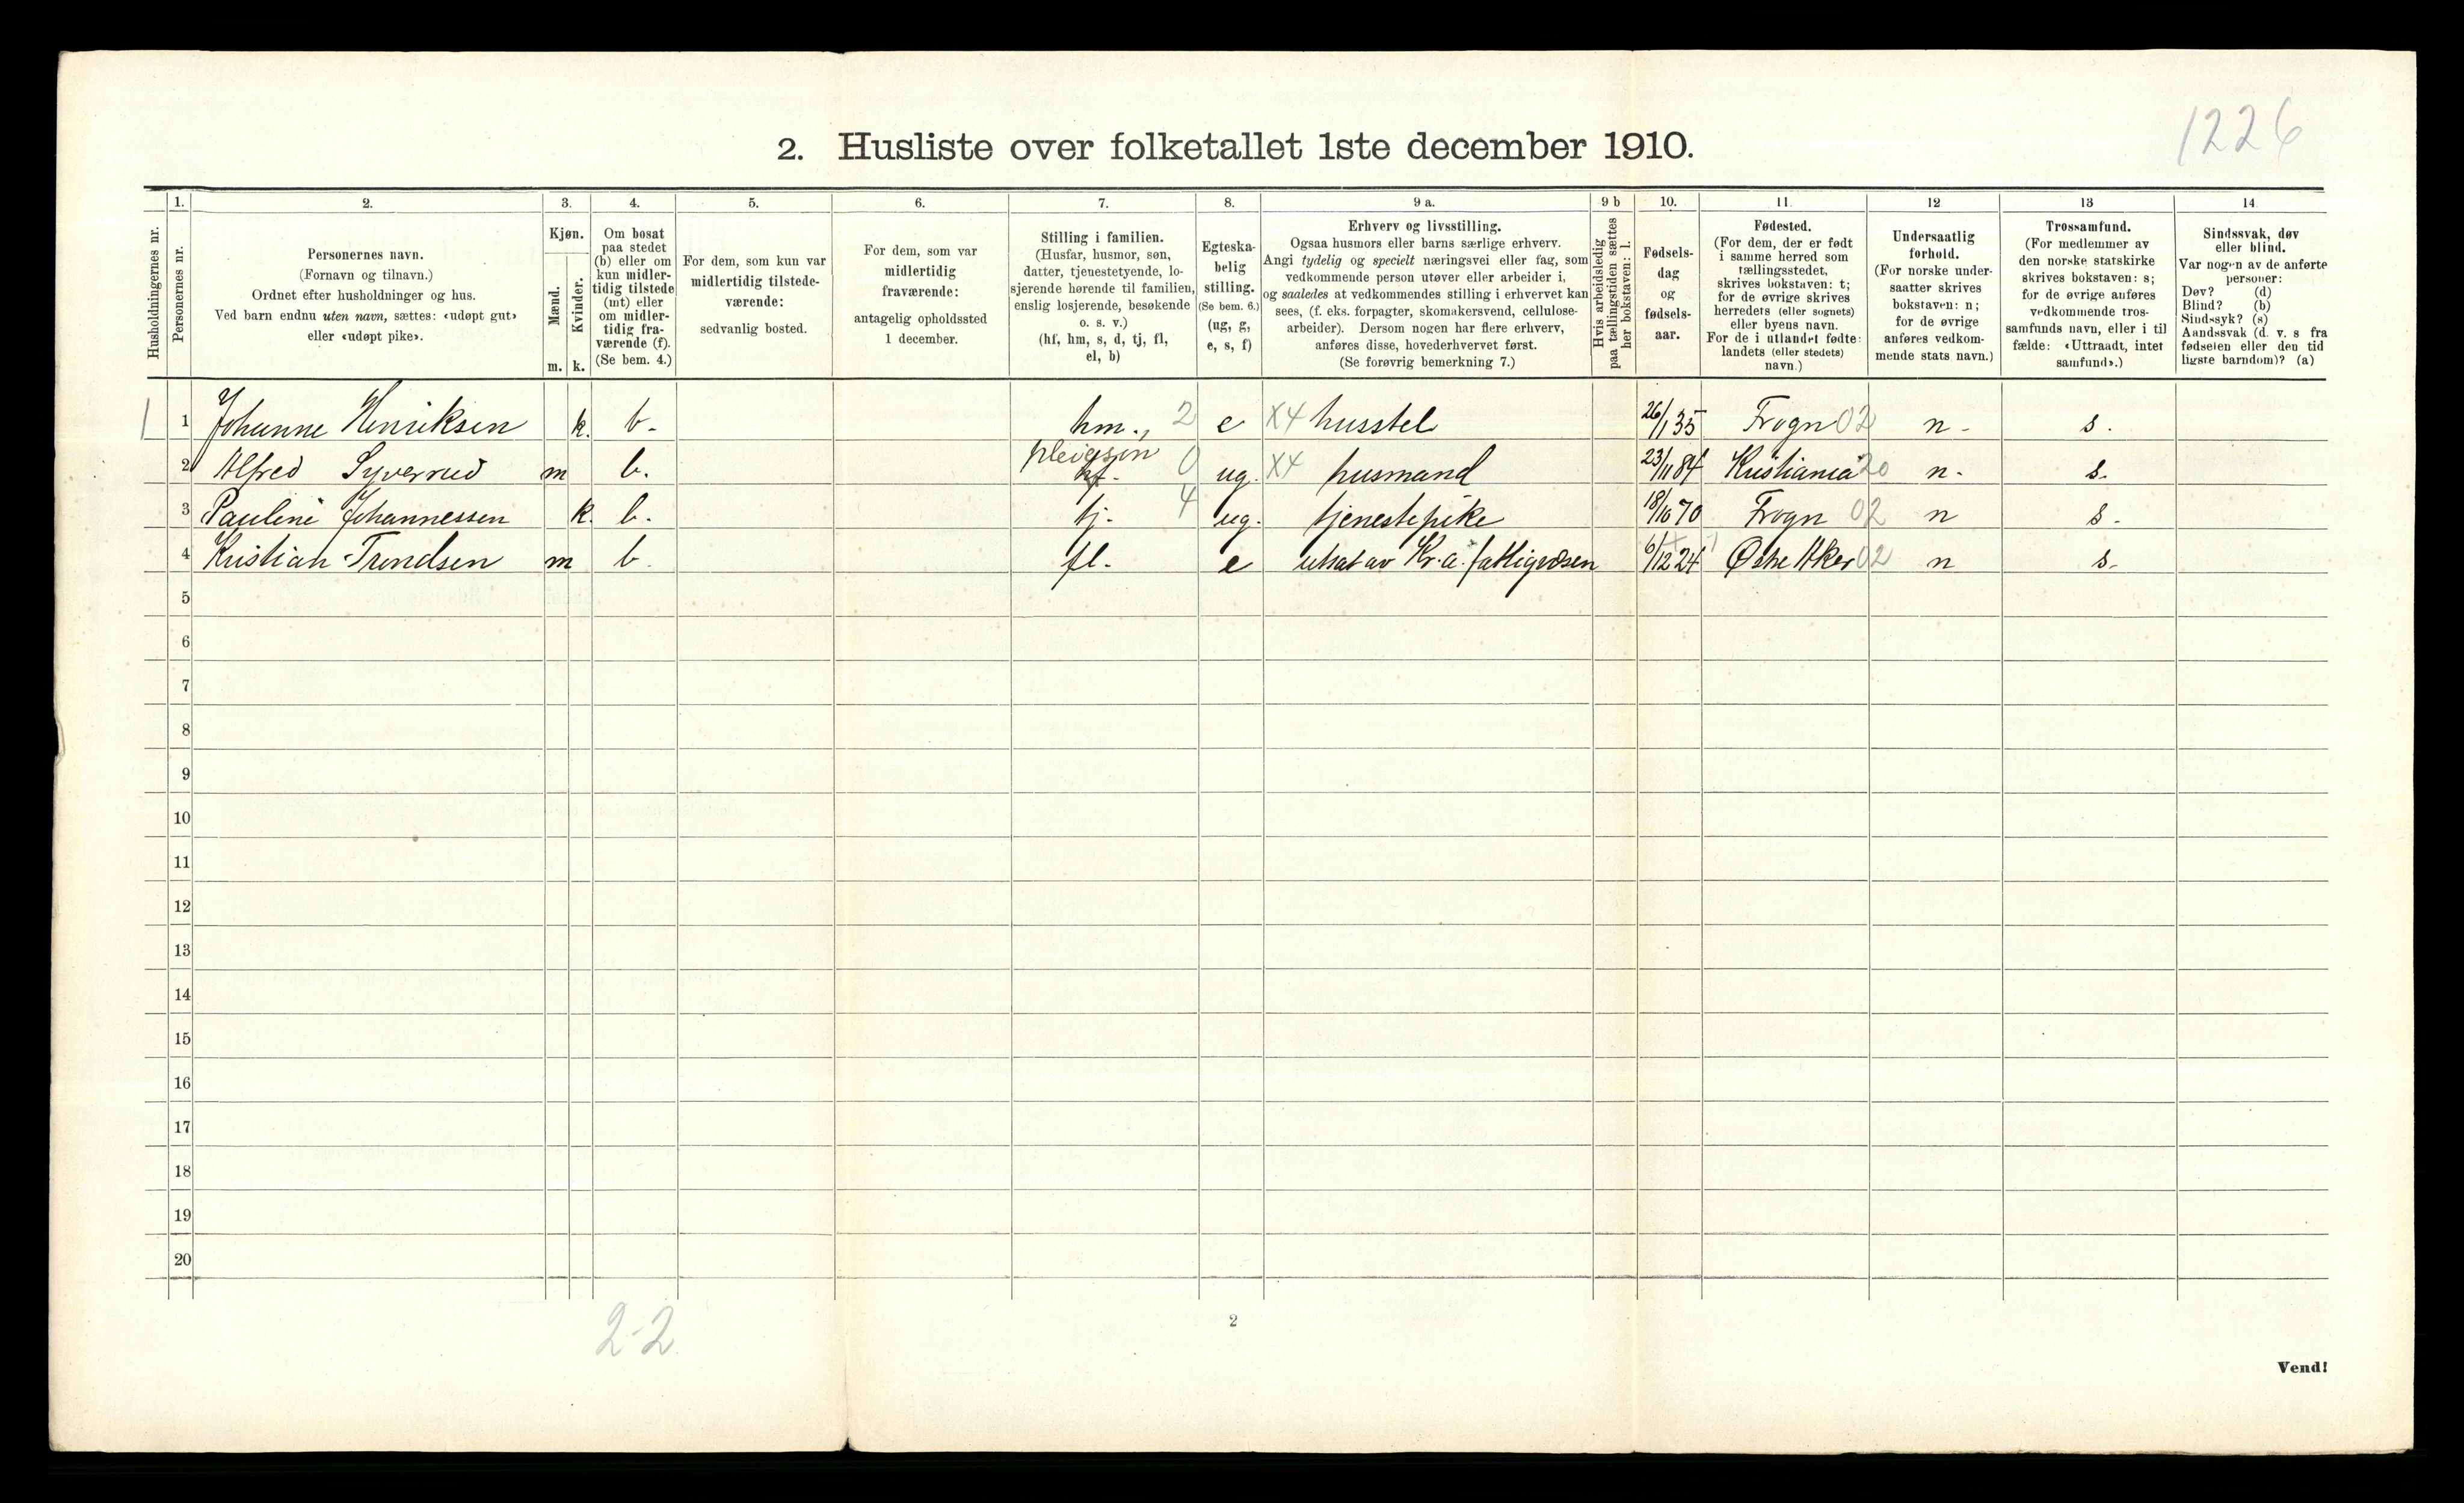 1226
2. Husliste over folketallet 1ste december 1910.
1. 2. 3. 4. 5. 6. 7. 8. 9 a. 9 b 10. 11. 12 13 14
Husholdningernes nr.
Personernes nr.
Personernes navn.
(Fornavn og tilnavn.)
Ordnet efter husholdninger og hus.
Ved barn endnu uten navn, sættes: «udøpt gut»
eller «udøpt pike».
Kjøn.
Mænd.
Kvinder.
m. k.
Om bosat
paa stedet
(b) eller om
kun midler-
tidig tilstede
(mt) eller
om midler-
tidig fra-
værende (f).
(Se bem. 4.)
For dem, som kun var
midlertidig tilstede-
værende:
sedvanlig bosted.
For dem, som var
midlertidig
fraværende:
antagelig opholdssted
1 december.
Stilling i familien.
(Husfar, husmor, søn,
datter, tjenestetyende, lo-
sjerende hørende til familien,
enslig losjerende, besøkende
o. s. v.)
(hf, hm, s, d, tj, fl,
el, b)
Egteska-
belig
stilling.
(Se bem. 6.)
(ug, g,
e, s, f)
Erhverv og livsstilling.
Ogsaa husmors eller barns særlige erhverv.
Angi tydelig og specielt næringsvei eller fag, som
vedkommende person utøver eller arbeider i,
og saaledes at vedkommendes stilling i erhvervet kan
sees, (f. eks. forpagter, skomakersvend, cellulose-
arbeider). Dersom nogen har flere erhverv,
anføres disse, hovederhvervet først.
(Se forøvrig bemerkning 7.)
Hvis arbeidsledig
paa tællingstiden sættes
her bokstaven: l.
Fødsels-
dag
og
fødsels-
aar.
Fødested.
(For dem, der er født
i samme herred som
tællingsstedet,
skrives bokstaven: t;
for de øvrige skrives
herredets (eller sognets)
eller byens navn.
For de i utlandet fødte:
landets (eller stedets)
navn.)
Undersaatlig
forhold.
(For norske under-
saatter skrives
bokstaven: n;
for de øvrige
anføres vedkom-
mende stats navn.)
Trossamfund.
(For medlemmer av
den norske statskirke
skrives bokstaven: s;
for de øvrige anføres
vedkommende tros-
samfunds navn, eller i til
fælde: «Uttraadt, intet
samfund».)
Sindssvak, døv
eller blind.
Var nogen av de anførte
personer:
Døv? (d)
Blind? (b)
Sindssyk? (s)
Aandssvak (d. v. s fra
fødselen eller den tid
ligste barndom)? (a)
1 1 Johanne Henriksen k. b. hm. 2 e X4 husstel 26/1 35 Frogn 02 n. s.
2 Alfred Syverrud m b. pleiesøn hf. 0 ug. X4 husmand 23/11 84 Kristiania 20 n. s.
3 Pauline Johannessen k. b. tj. 4 ug. tjenestepike 18/10 70 Frogn 02 n s.
4 Kristian Trondsen m b. fl. e utsat av Kr.a. fattigvæsen 6/12 24 Østre Aker 02 n s.
5
6
7
8
9
10
11
12
13
14
15
16
17
18
19
20
2-2
2
Vend!